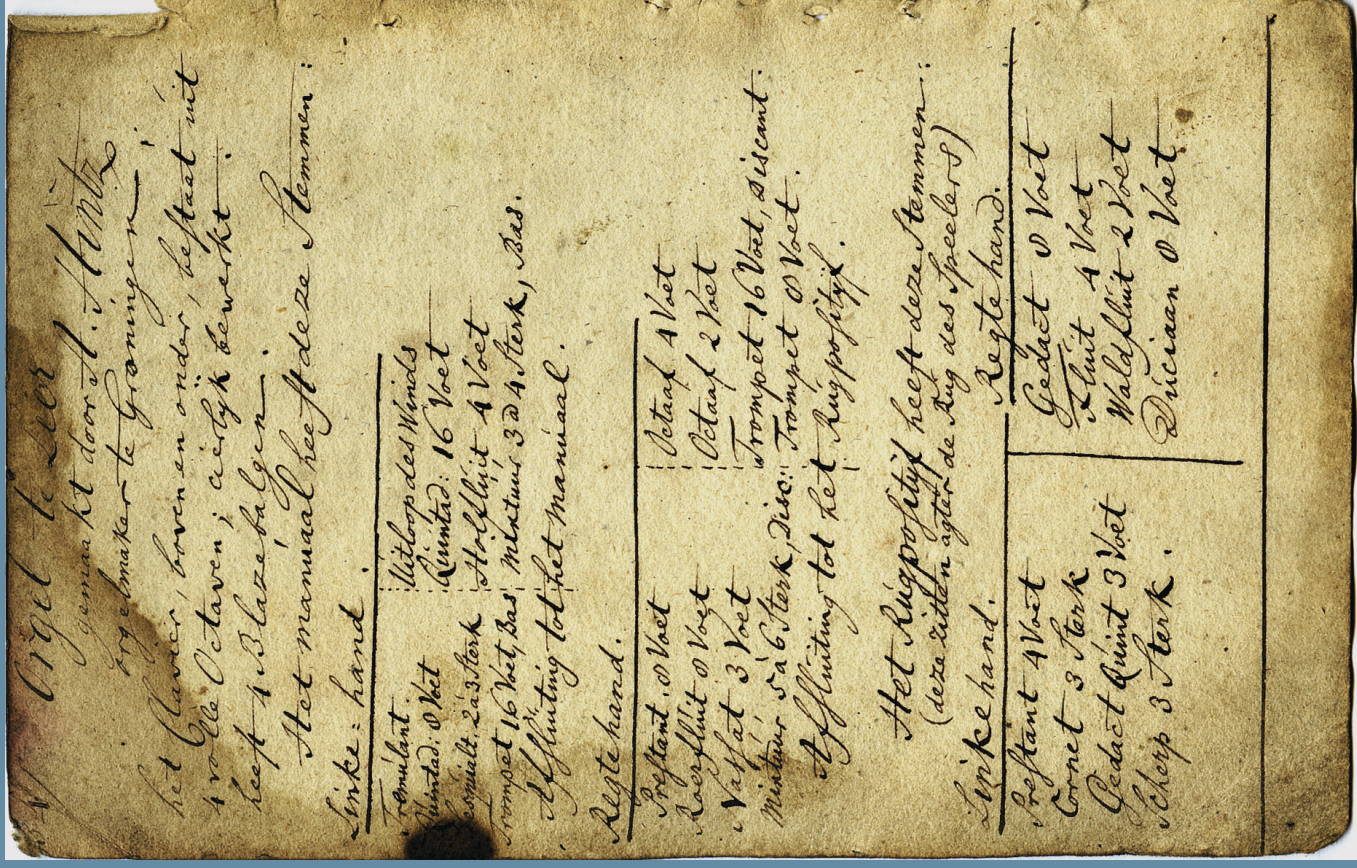 Orgel te Lier
gemaakt door A. Hintz
orgelmaker te Groningen.
het Clavier, boven en onder, bestaat uit
4 volle Octaven; cierlyk bewerkt.
heeft 4 Blazebalgen.
Het manuaal heeft deze Stemmen:
Linke: hand.
Tremulant. Uitloop des Winds
Quintad. 8 Voet Quintad: 16 Voet
2 à 3 Sterk Holfluit 4 Voet
Trompet 16 Voet, Bas Mixtuur 3 à 4 Sterk, Bas.
Affluiting tot het Manuaal.
Regte hand.
Prestant. 8 Voet Octaaf 4 Voet
Roerfluit 8 Voet Octaaf 2 Voet
Nassat 3 Voet Trompet 16 Voet, Discant.
Mixtuur 5 à 6 Sterk, Disc: Trompet 8 Voet.
Affluiting tot het Rugpositijf.
Het Rugpositijf heeft deze Stemmen:
(deze zitten agter de Rug des Speelers)
Linke hand. Regte hand.
Prestant 4 Voet Gedact 8 Voet
Cornet 3 Sterk Fluit 4 Voet
Gedact Quint 3 Voet Waldfluit 2 Voet
Scherp 3 Sterk. Dulciaan 8 Voet